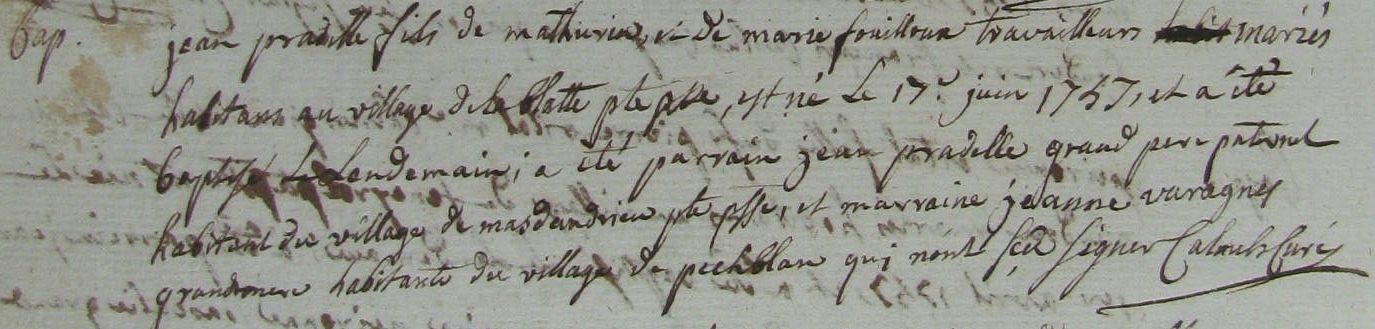 Bap. jean pradille fils de mathurin, et de marie fouilloux travailleurs mariés
habitans au village de la blatte pte psse, est né le 17e. juin 1757, et a été
baptisé le Lendemain; a été parrain jean pradelle grand pere paternel
habitant du village de masdandrieu pte psse, et marraine jeanne varagnes
grandmere habitante du village de pechblan qui n'ont sçu signer Calmels Curé